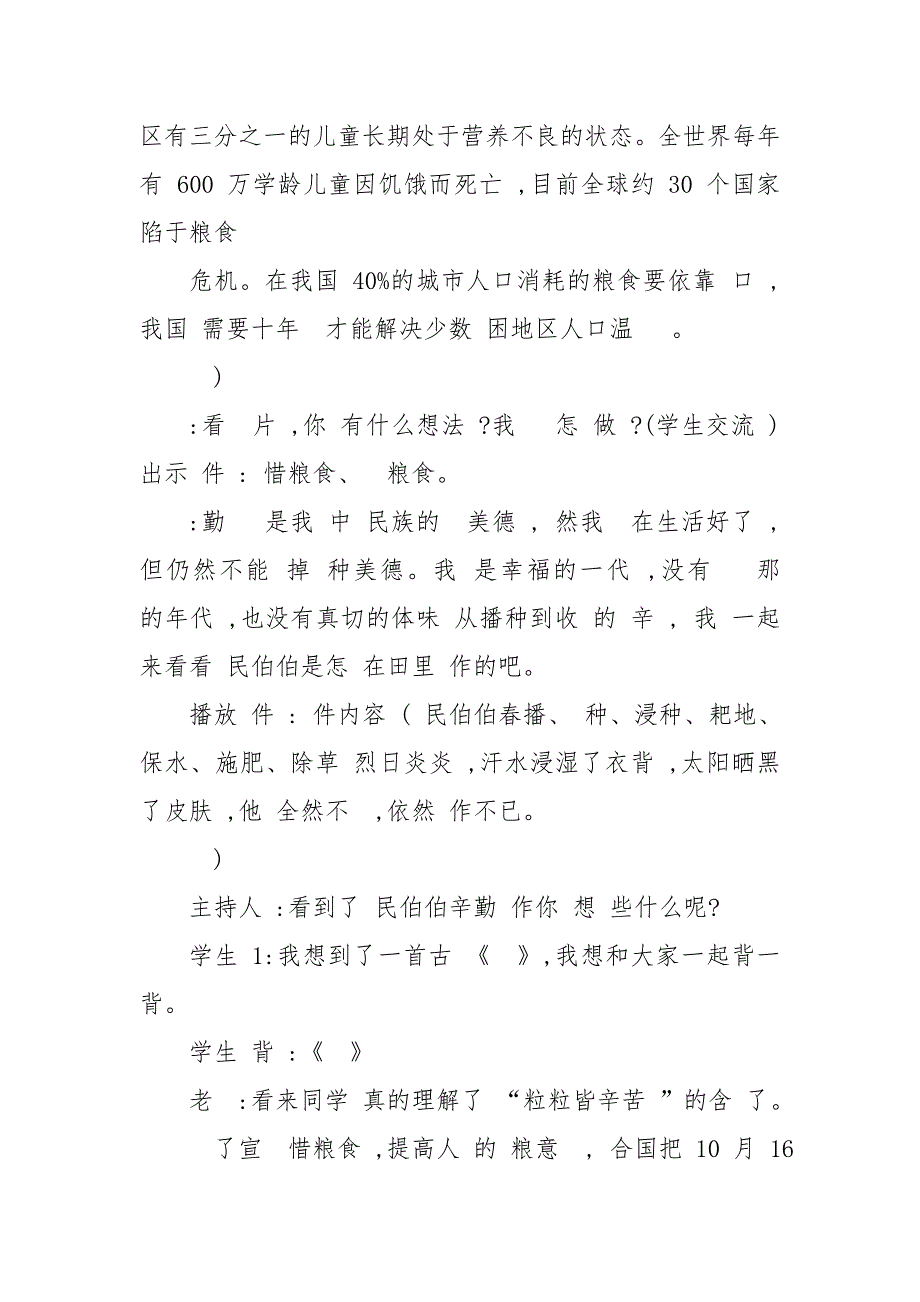 区有三分之一的儿童长期处于营养不良的状态。全世界每年
有 600 万学龄儿童因饥饿而死亡 ,目前全球约 30 个国家
陷于粮食
危机。在我国 40%的城市人口消耗的粮食要依靠 口 ,
我国 需要十年 才能解决少数 困地区人口温 。
)
:看 片 ,你 有什么想法 ?我 怎 做 ?(学生交流 )
出示 件 : 惜粮食、 粮食。
:勤 是我 中 民族的 美德 , 然我 在生活好了 ,
但仍然不能 掉 种美德。我 是幸福的一代 ,没有 那
的年代 ,也没有真切的体味 从播种到收 的 辛 , 我 一起
来看看 民伯伯是怎 在田里 作的吧。
播放 件 : 件内容 ( 民伯伯春播、 种、浸种、耙地、
保水、施肥、除草 烈日炎炎 ,汗水浸湿了衣背 ,太阳晒黑
了皮肤 ,他 全然不 ,依然 作不已。
)
主持人 :看到了 民伯伯辛勤 作你 想 些什么呢?
学生 1:我想到了一首古 《 》,我想和大家一起背一
背。
学生 背 :《 》
老 :看来同学 真的理解了 “粒粒皆辛苦 ”的含 了。
了宣 惜粮食 ,提高人 的 粮意 , 合国把 10 月 16